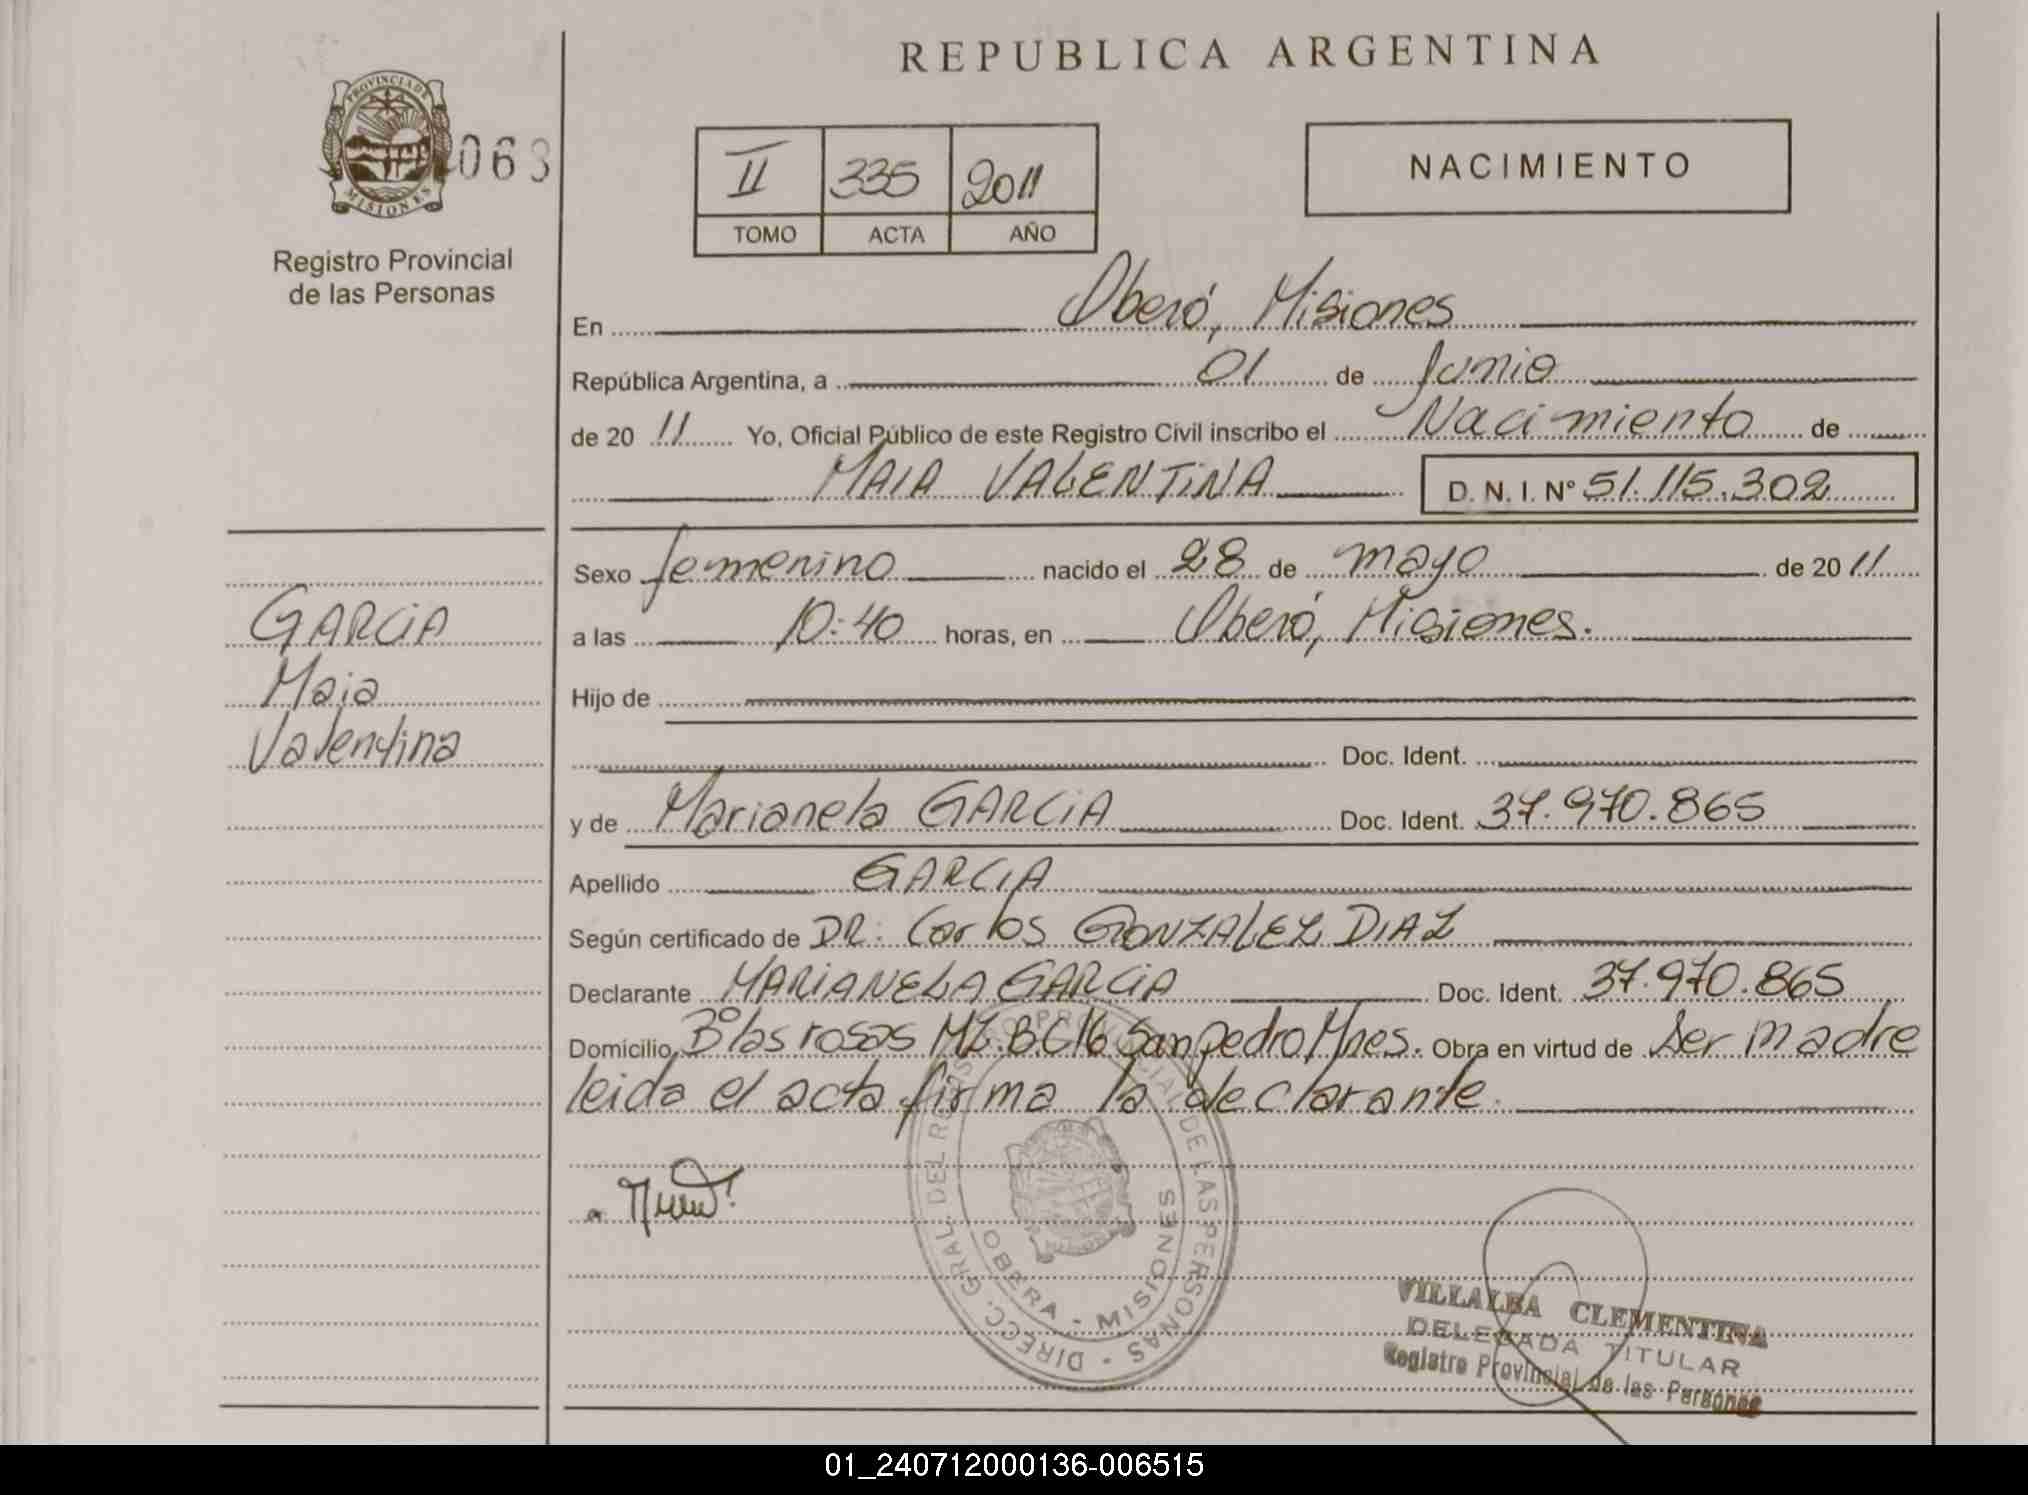 REPUBLICA ARGENTINA
PROVINCIA DE
MISIONES
063
Registro Provincial
de las Personas
II 335 2011
TOMO ACTA AÑO
NACIMIENTO
En Oberá, Misiones
República Argentina, a 01 de Junio
de 2011 Yo, Oficial Público de este Registro Civil inscribo el Nacimiento de
MAIA VALENTINA D. N. I. Nº 51.115.302
Sexo femenino nacido el 28 de mayo de 2011
a las 10:40 horas, en Oberá, Misiones.
Hijo de
Doc. Ident.
y de Marianela GARCIA Doc. Ident. 37.970.865
Apellido GARCIA
Según certificado de DR. Carlos GONZALEZ DIAZ
Declarante MARIANELA GARCIA Doc. Ident. 37.970.865
Domicilio Bº las rosas MZ.B.C16 San Pedro Mnes. Obra en virtud de ser madre
leida el acta firma la declarante.
GARCIA
Maia
Valentina
DIRECC. GRAL. DEL REGISTRO PROVINCIAL DE LAS PERSONAS
OBERA - MISIONES
VILLALBA CLEMENTINA
DELEGADA TITULAR
Registro Provincial de las Personas
01_240712000136-006515